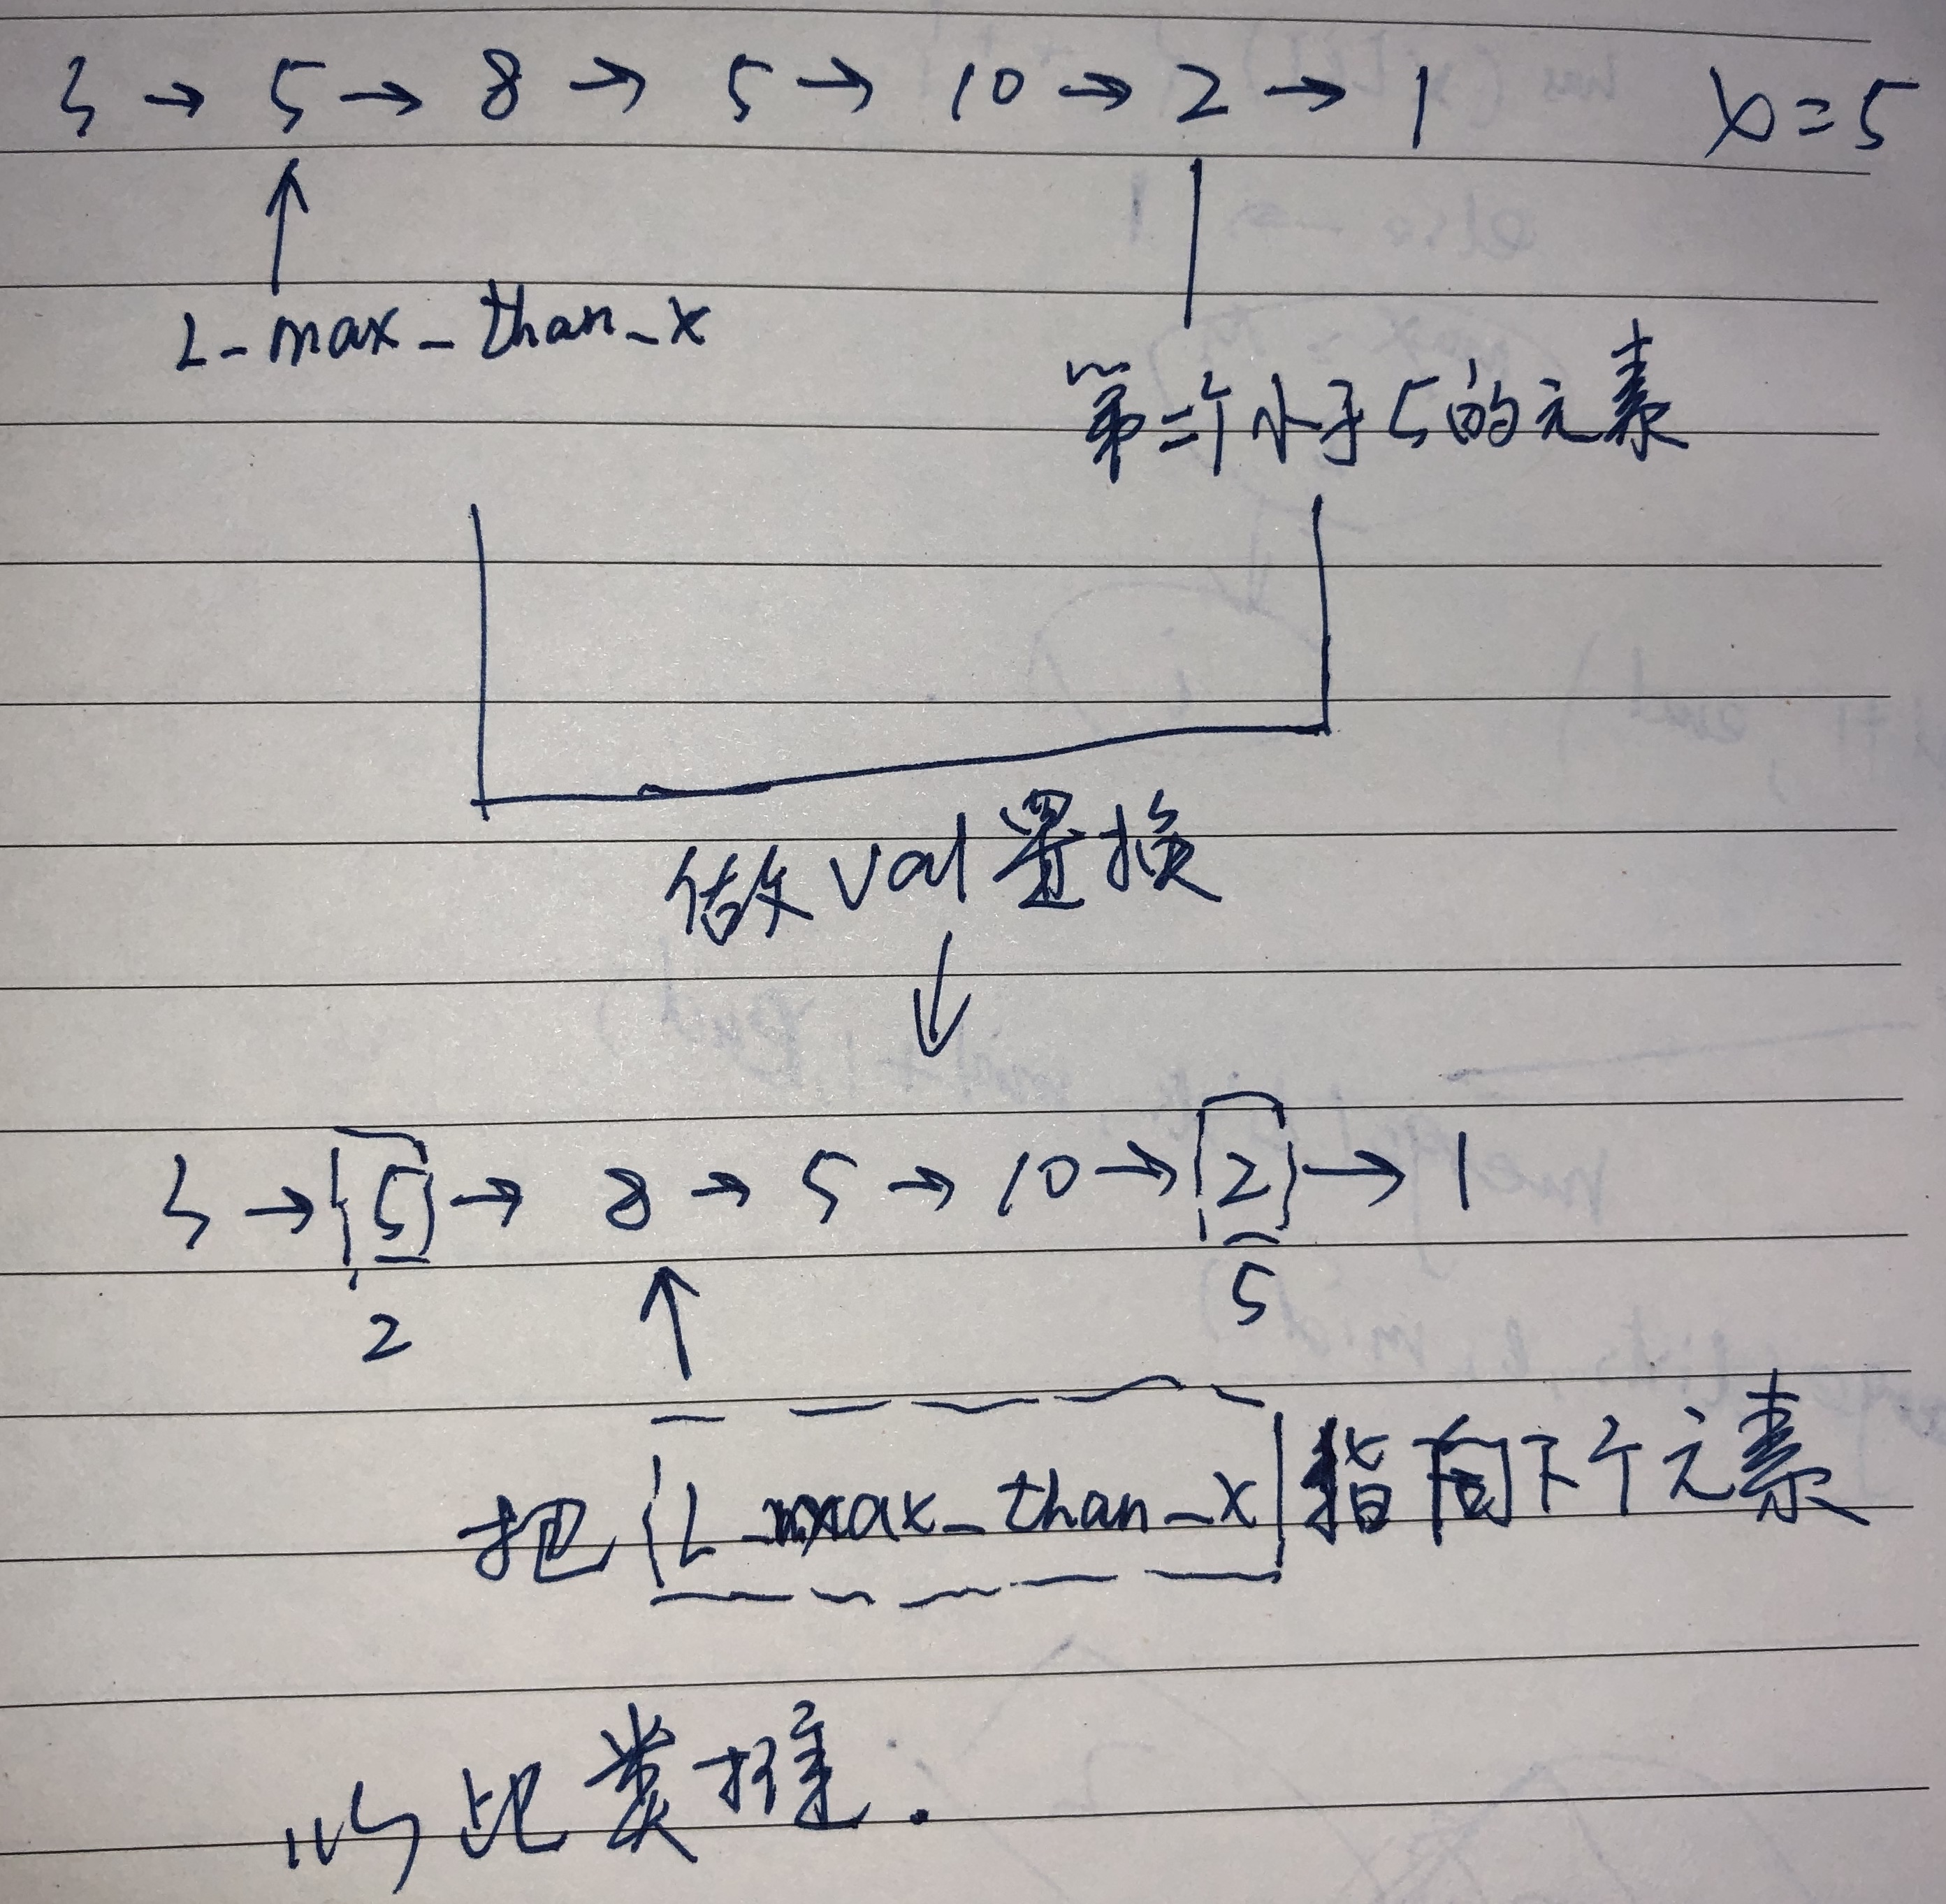 3 → 5 → 8 → 5 → 10 → 2 → 1 x=5
L-max-than-x
第二个小于5的元素
做val置换
3 → 5 → 8 → 5 → 10 → 2 → 1
2 5
把 L-max-than-x 指向下个元素
以此类推.